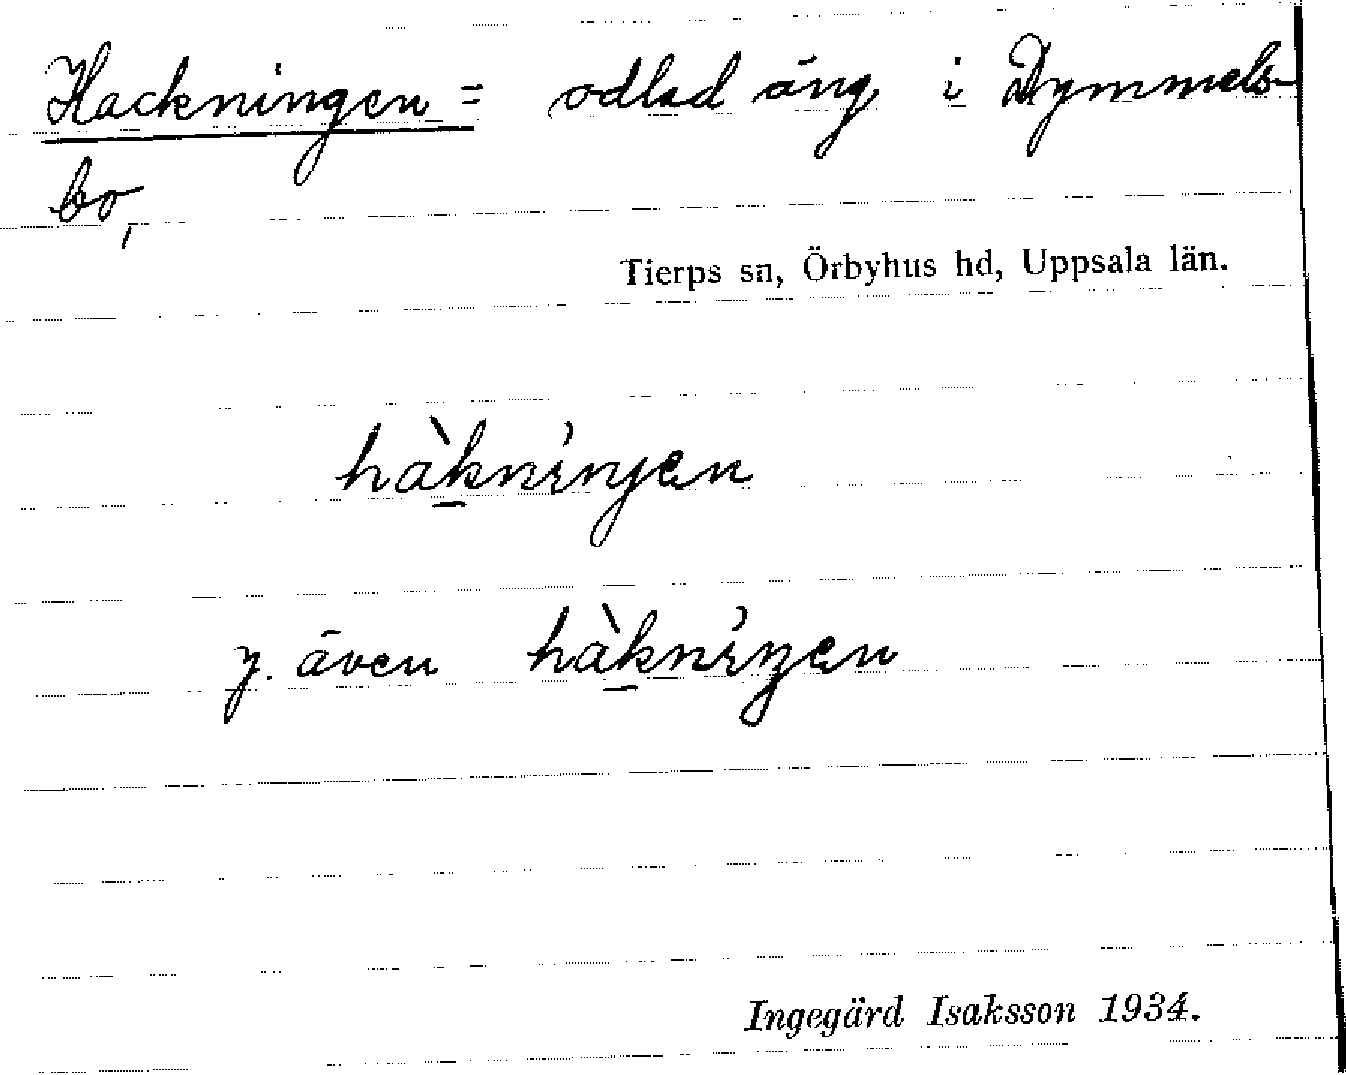 Hackningen = odlad äng i Dymmels-
bo,
Tierps sn, Örbyhus hd, Uppsala län.
hàkniŋen
y. även hàkniŋen
Ingegärd Isaksson 1934.